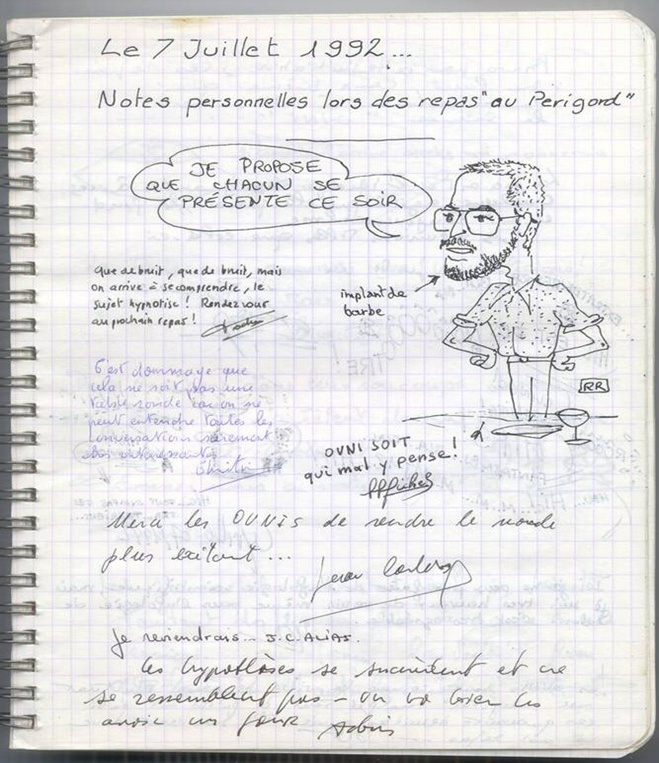 Le 7 Juillet 1992...
Notes personnelles lors des repas "au Périgord"
JE PROPOSE
QUE CHACUN SE
PRÉSENTE CE SOIR
Que de bruit, que de bruit, mais
on arrive à se comprendre, le
sujet hypnotise ! Rendez vous
au prochain repas !
implant de
barbe
C'est dommage que
cela ne soit pas une
table ronde car on ne
peut entendre toutes les
conversations sûrement
très intéressantes
RR
OVNI SOIT
qui mal y pense !
Merci les OVNIS de rendre le monde
plus exitant...
Je reviendrais... J.C. ALIAS.
Les hypothèses se succèdent et ne
se ressemblent pas - on va bien les
avoir un jour